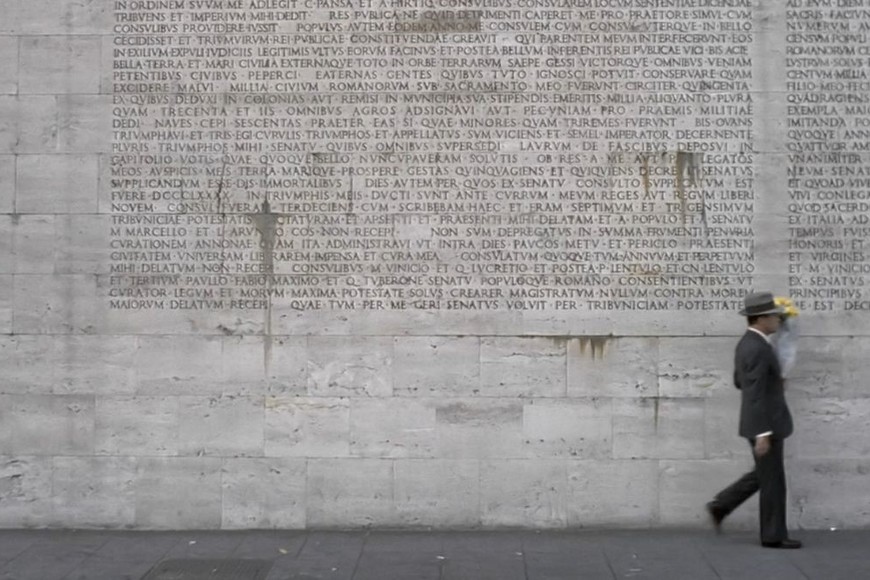 IN ORDINEM SVVM ME ADLEGIT C·PANSA ET A·HIRTIO CONSVLAREM LOCVM SENTENTIAE
TRIBVENS ET IMPERIVM MIHI DEDIT RES PVBLICA NE QVID DETRIMENTI CAPERET ME PRO PRAETORE SIMVL CVM
CONSVLIBVS PROVIDERE IVSSIT POPVLVS AVTEM EODEM ANNO ME CONSVLEM CVM CONSVL VTERQVE IN BELLO
CECIDISSET ET TRIVMVIRVM REI PVBLICAE CONSTITVENDAE CREAVIT QVI PARENTEM MEVM INTERFECERVNT EOS
IN EXILIVM EXPVLI IVDICIIS LEGITIMIS VLTVS EORVM FACINVS ET POSTEA BELLVM INFERENTIS REI PVBLICAE VICI BIS ACIE
BELLA TERRA ET MARI CIVILIA EXTERNAQVE TOTO IN ORBE TERRARVM SAEPE GESSI VICTORQVE OMNIBVS VENIAM
PETENTIBVS CIVIBVS PEPERCI EXTERNAS GENTES QVIBVS TVTO IGNOSCI POTVIT CONSERVARE QVAM
EXCIDERE MALVI MILLIA CIVIVM ROMANORVM SVB SACRAMENTO MEO FVERVNT CIRCITER QVINGENTA
EX QVIBVS DEDVXI IN COLONIAS AVT REMISI IN MVNICIPIA SVA STIPENDIS EMERITIS MILLIA ALIQVANTO PLVRA
QVAM TRECENTA ET IIS OMNIBVS AGROS ADSIGNAVI AVT PECVNIAM PRO PRAEMIS MILITIAE
DEDI NAVES CEPI SESCENTAS PRAETER EAS SI QVAE MINORES QVAM TRIREMES FVERVNT BIS OVANS
TRIVMPHAVI ET TRIS EGI CVRVLIS TRIVMPHOS ET APPELLATVS SVM VICIENS ET SEMEL IMPERATOR DECERNENTE
PLVRIS TRIVMPHOS MIHI SENATV QVIBVS OMNIBVS SVPERSEDI LAVRVM DE FASCIBVS DEPOSVI IN
CAPITOLIO VOTIS QVAE QVOQVE BELLO NVNCVPAVERAM SOLVTIS OB RES A ME AVT PER LEGATOS
MEOS AVSPICIS MEIS TERRA MARIQVE PROSPERE GESTAS QVINQVAGIENS ET QVINQVIENS DECREVIT SENATVS
SVPPLICANDVM ESSE DIS IMMORTALIBVS DIES AVTEM PER QVOS EX SENATV CONSVLTO SVPPLICATVM EST
FVERE DCCCLXXXX IN TRIVMPHIS MEIS DVCTI SVNT ANTE CVRRVM MEVM REGES AVT REGVM LIBERI
NOVEM CONSVL FVERAM TERDECIENS CVM SCRIBEBAM HAEC ET ERAM SEPTIMVM ET TRICENSIMVM
TRIBVNICIAE POTESTATIS DICTATVRAM ET APSENTI ET PRAESENTI MIHI DELATAM ET A POPVLO ET SENATV
M MARCELLO ET L ARRVNTIO COS NON RECEPI NON SVM DEPRECATVS IN SVMMA FRVMENTI PENVRIA
CVRATIONEM ANNONAE QVAM ITA ADMINISTRAVI VT INTRA DIES PAVCOS METV ET PERICLO PRAESENTI
CIVITATEM VNIVERSAM LIBERAREM IMPENSA ET CVRA MEA CONSVLATVM QVOQVE TVM ANNVVM ET PERPETVVM
MIHI DELATVM NON RECEPI CONSVLIBVS M VINICIO ET Q LVCRETIO ET POSTEA P LENTVLO ET CN LENTVLO
ET TERTIVM PAVLLO FABIO MAXIMO ET Q TVBERONE SENATV POPVLOQVE ROMANO CONSENTIENTIBVS VT
CVRATOR LEGVM ET MORVM MAXIMA POTESTATE SOLVS CREARER MAGISTRATVM NVLLVM CONTRA MOREM
MAIORVM DELATVM RECEPI QVAE TVM PER ME GERI SENATVS VOLVIT PER TRIBVNICIAM POTESTATEM
SACRIS
TRIBVNICIA
ROMANORVM
LVSTRVM
CENTVM MILLIA
FILIO MEO
QVADRAGIENS
EXEMPLA MAIORVM
IMITANDA
QVOQVE ANNO
VNANIMITER
ET QVOAD VIV
VIVI CONLEGAE
SACERDO
EX ITALIA AD
TEMPVS FVISSE
HONORIS ET
ET VIRGINES
M VINICIO
EX SENATVS
PRINCIPIBVS